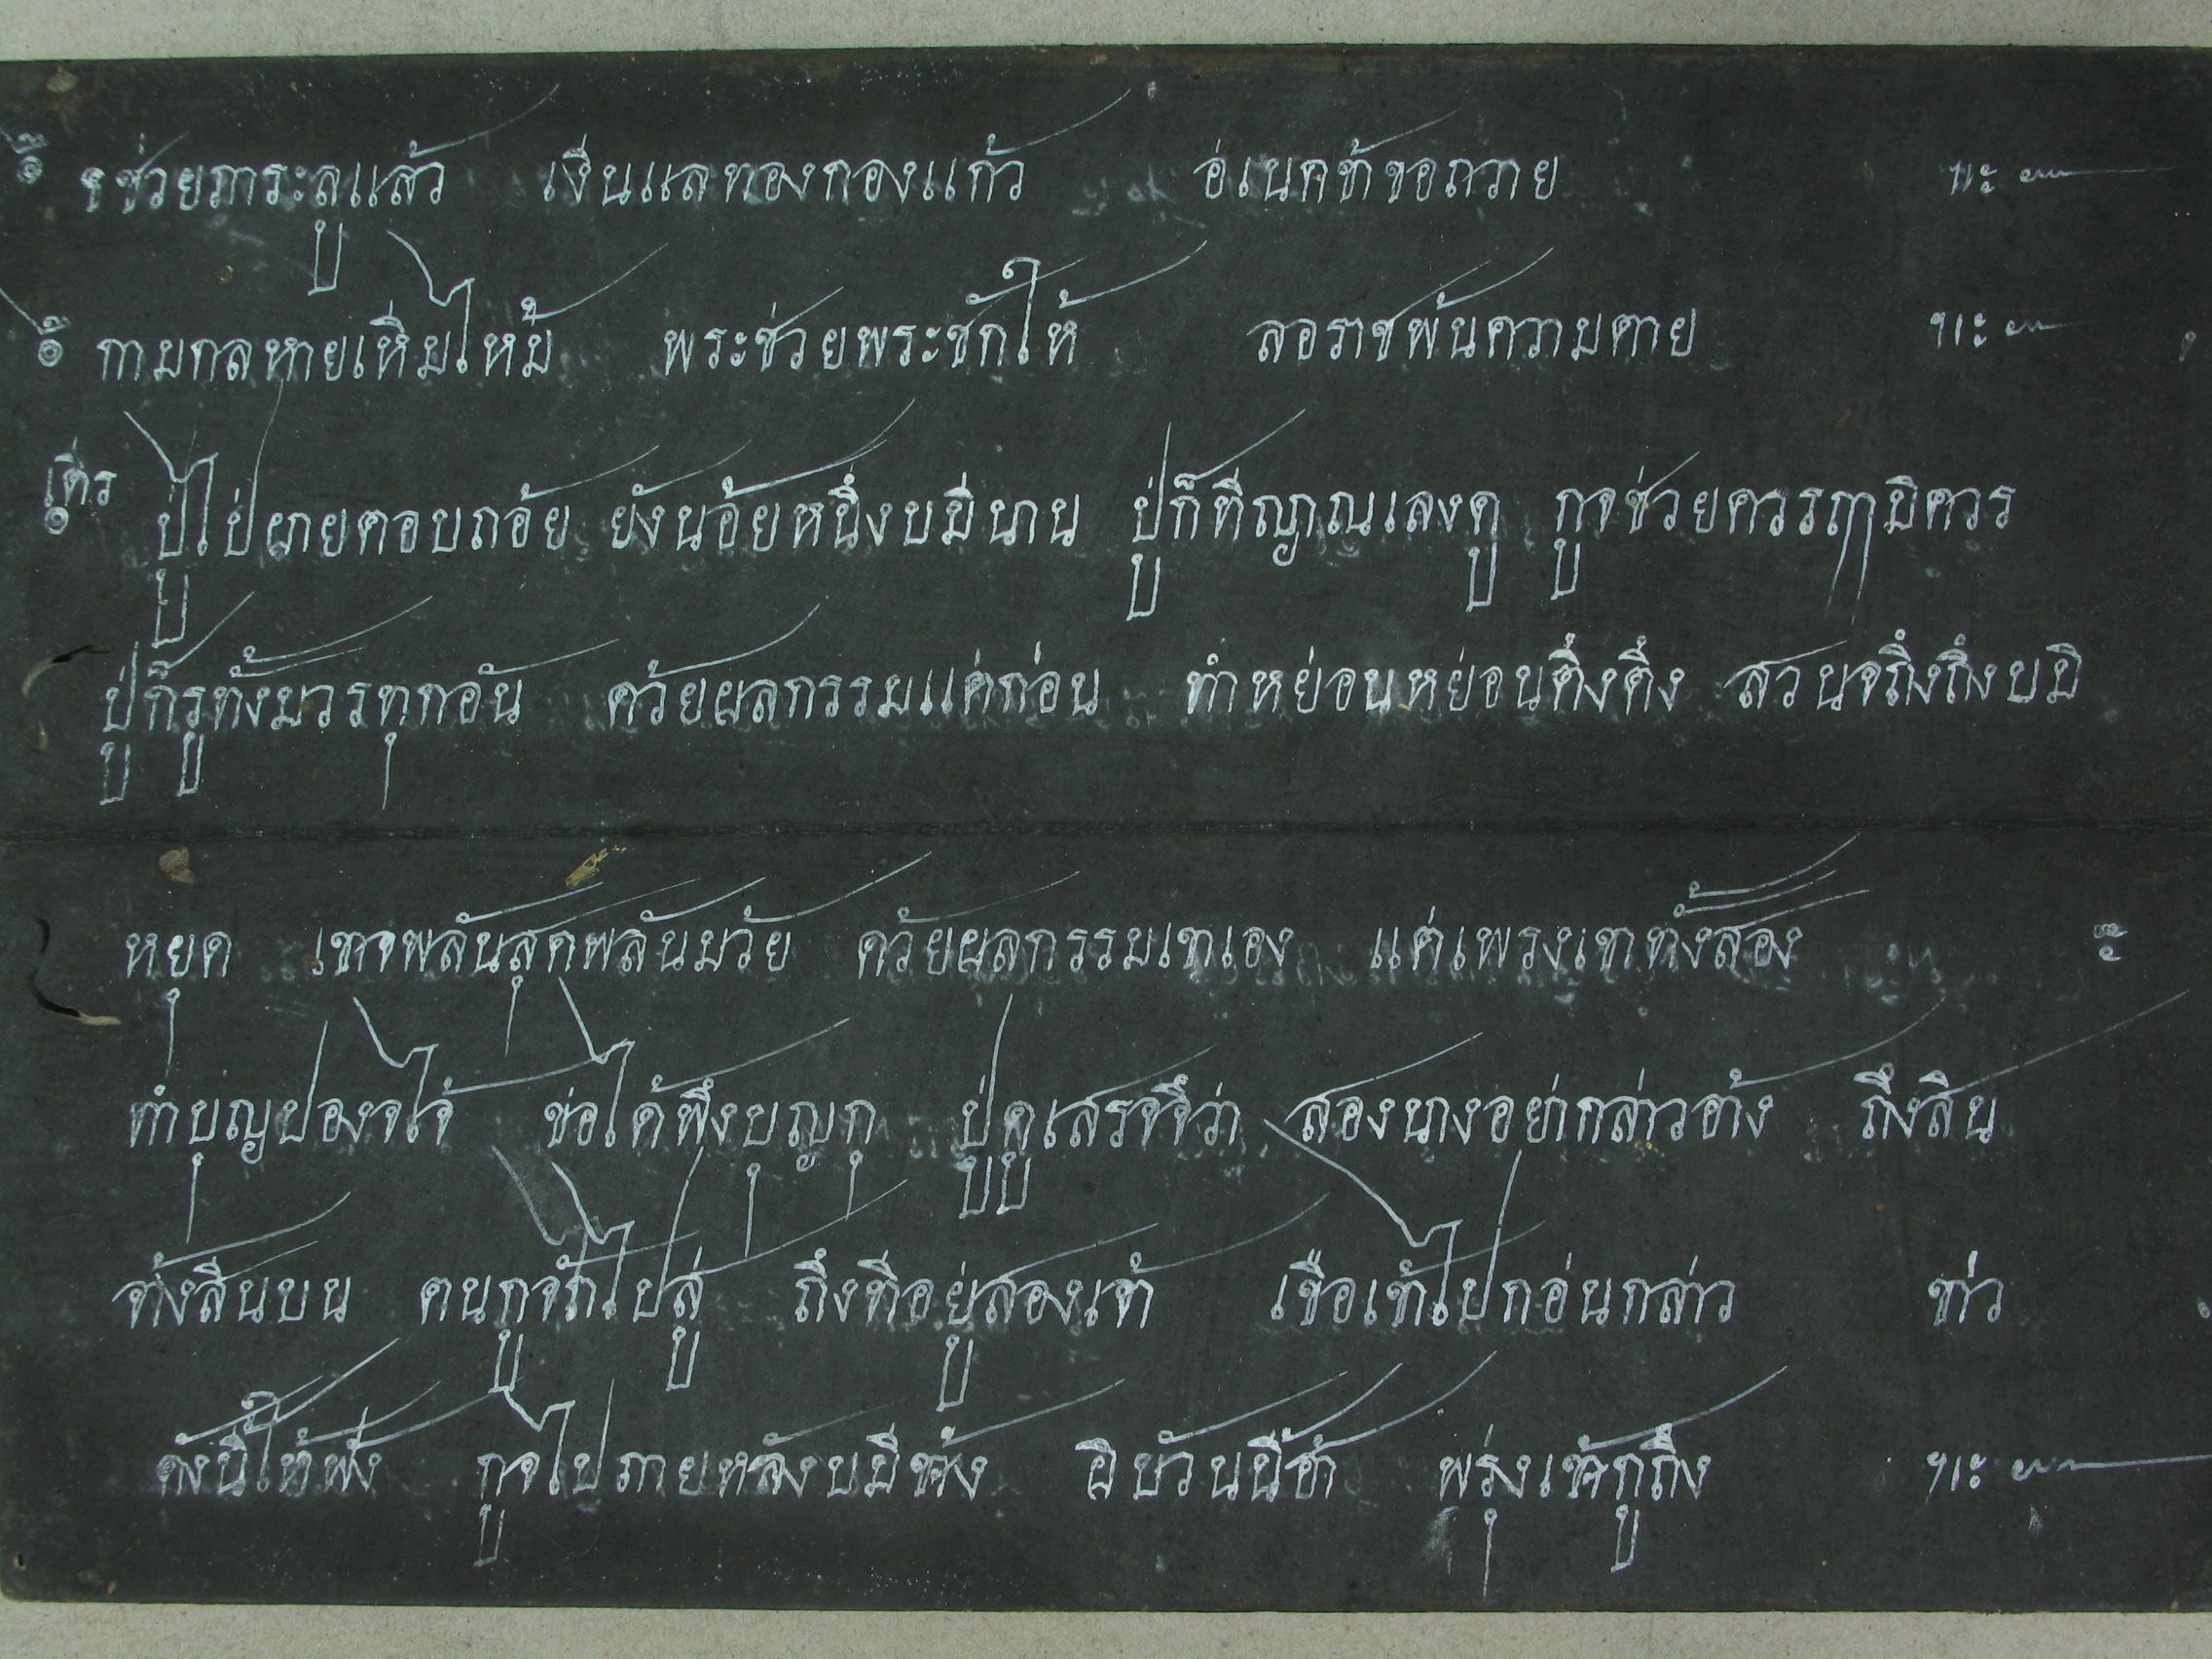 ๏ รช่วยภาระลูแล้ว เงินแลทองกองแก้ว อ่เนคข้าขอถวาย ฯะ
๏ กามกลหายเหิมไหม้ พระช่วยพระชักให้ ลอราชพ้นความตาย ฯะ
๏ เดิร ปู่ไป่ผายตอบถ้อย ยังน้อยหนึ่งบมีนาน ปู่ก็ทีญาณเลงดู กูจช่วยควรฤๅมิควร
ปู่ก็รูทั้งมวรทุกอัน ด้วยผลกรรมแต่ก่อน ทำหย่อนหย่อนตึ้งตึ้ง สวนจถึงถึงบมิ
หยุด เขาจพลันสุดพลันม้วย ด้วยผลกรรมเขาเอง แต่เพรงเขาทั้งสอง
ทำบุญปองจไจ้ ช่อได้พึ่งบุญกุ ปู่ดูเสรจจึ่ว่า สองนางอย่ากล่าวอ้าง ถึงสิน
จ้างสีนบน ตนกูจักไปสู่ ถึงที่อยู่สองเจ้า เชือเช้าไปกอ่นกล่าว ข่าว
ดังนี้ให้ฟัง กูจไปภายหลังบมีช้า อิบวันนี้ช้า พรุ่งเช้ากูถึง ฯะ